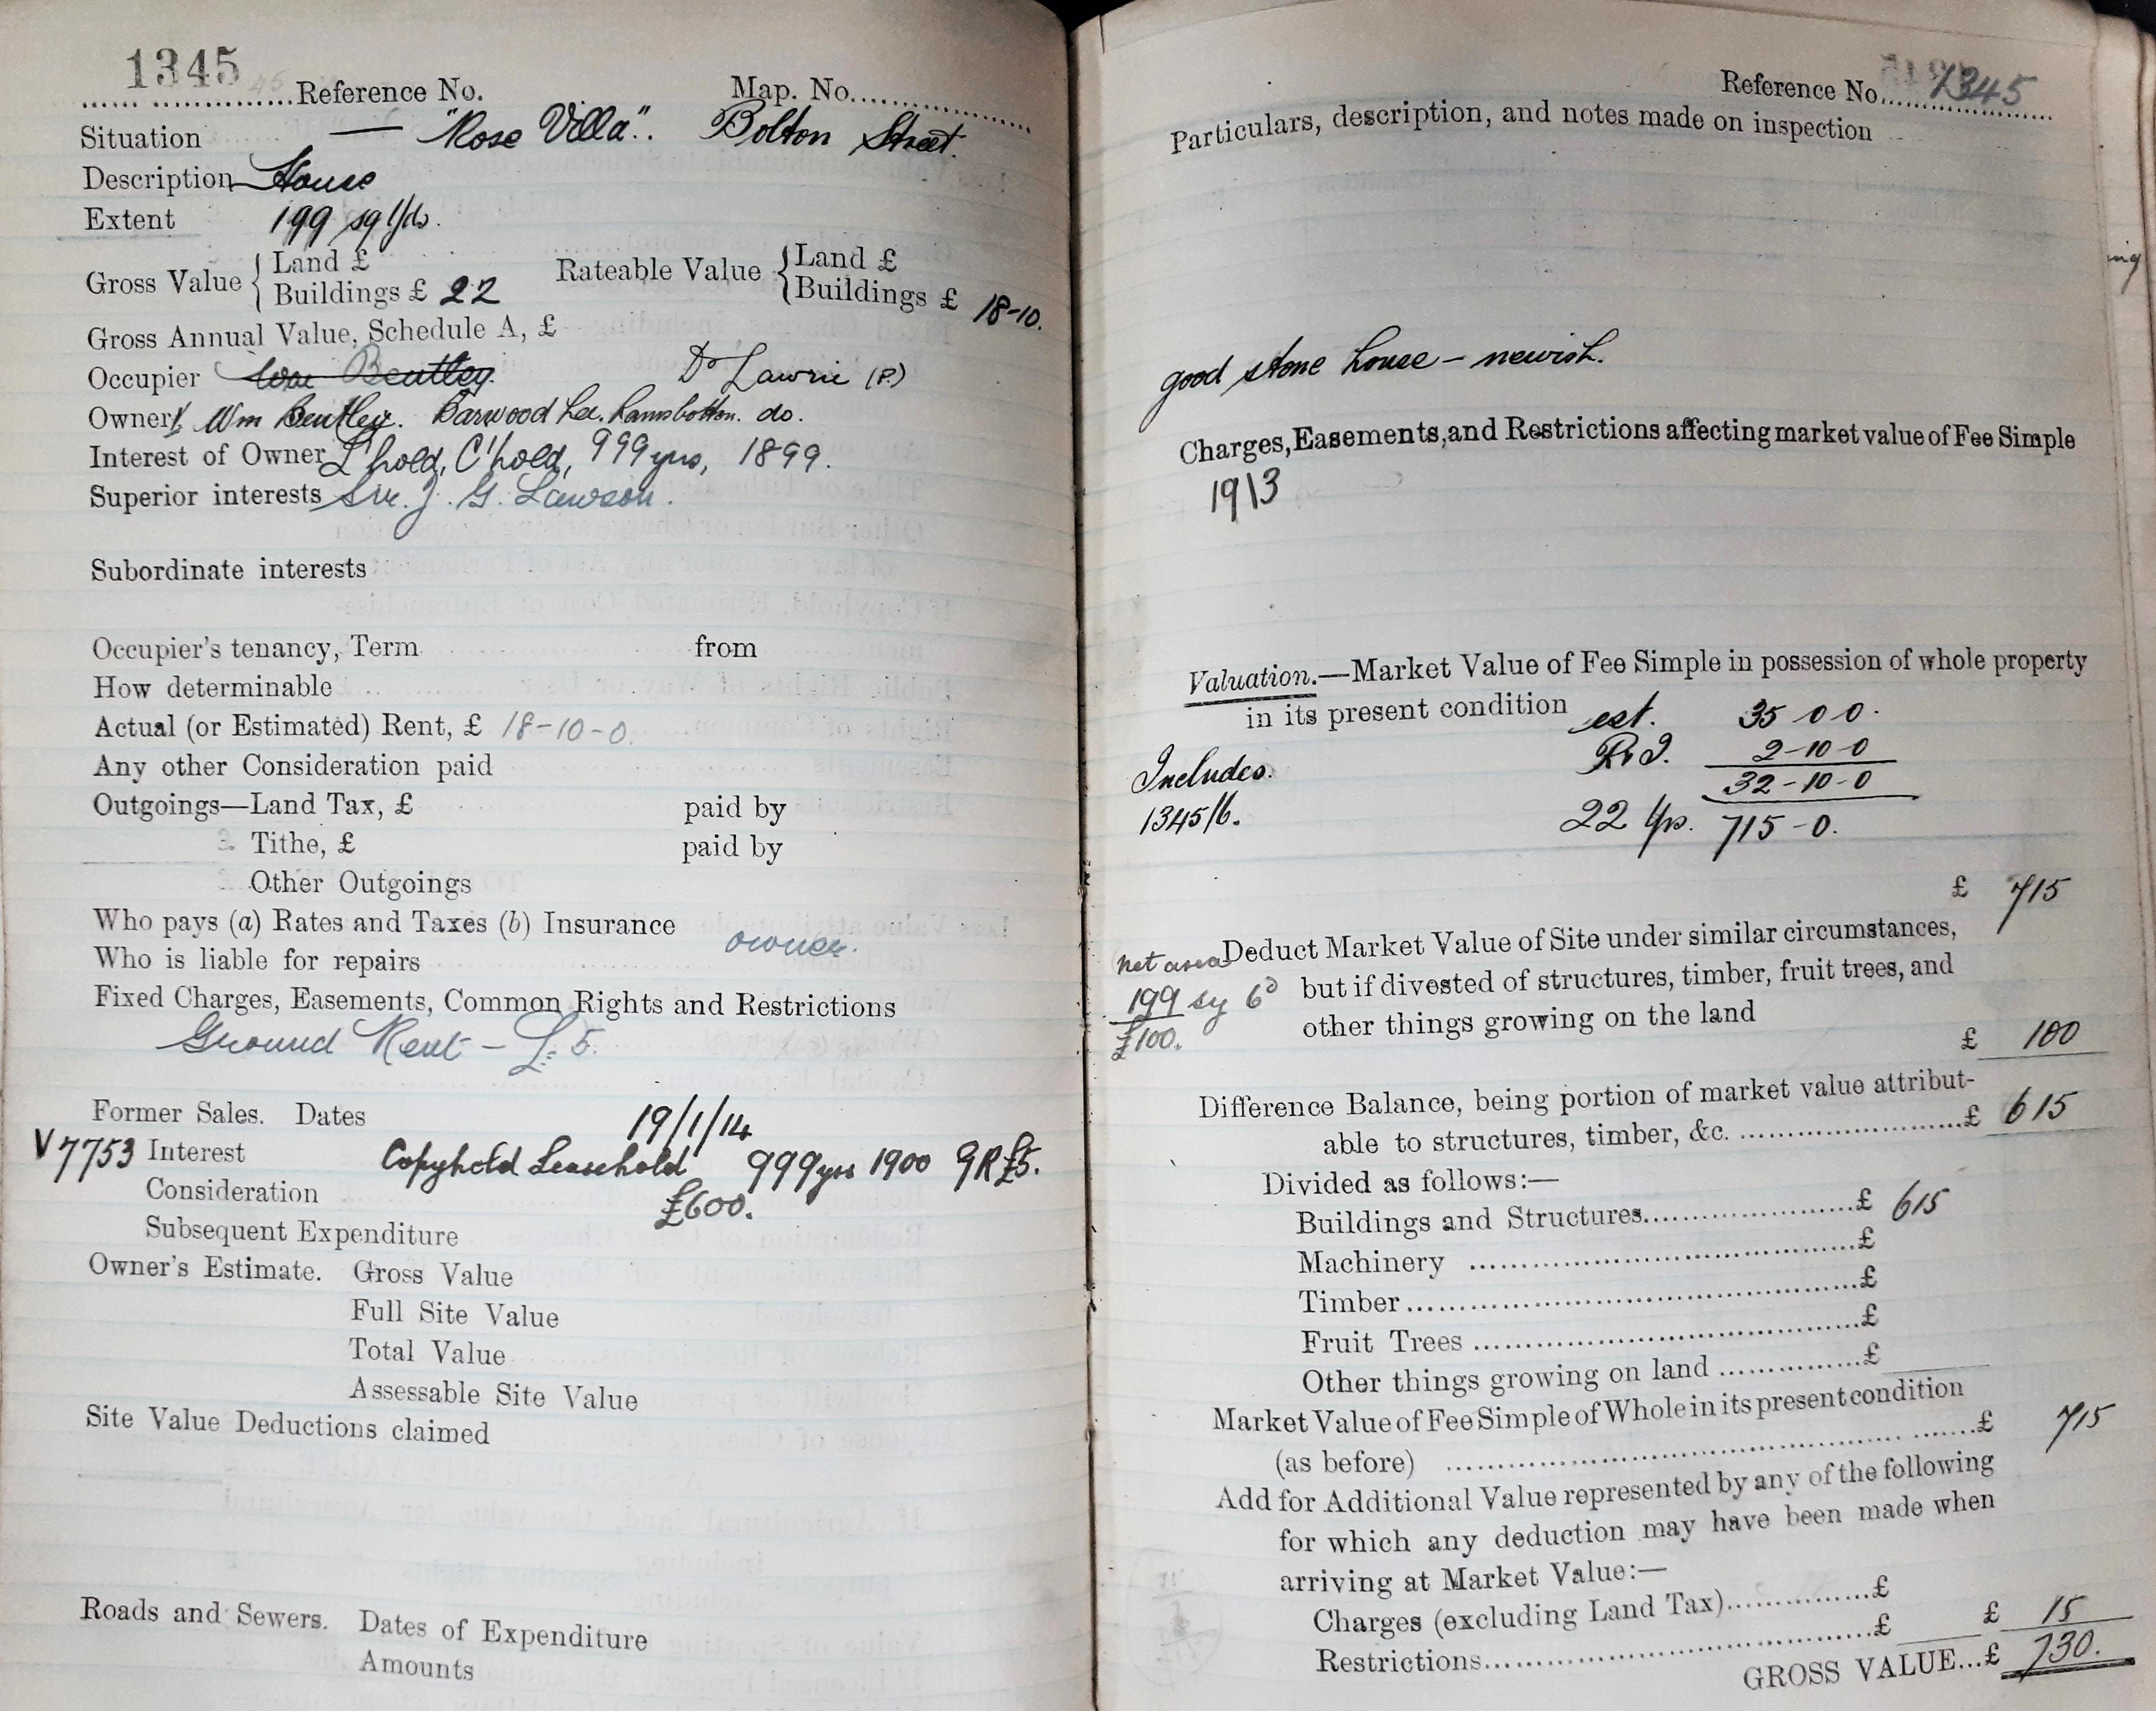 1345
Reference No. Map. No.
Situation — "Rose Villa". Bolton Street.
Description House
Extent 199 sq yds.
Gross Value { Land £
Buildings £ 22
Rateable Value { Land £
Buildings £ 18-10.
Gross Annual Value, Schedule A, £
Occupier Wm Bentley Dr Lawrie (P.)
Owner Wm Bentley. Barwood Lee. Ramsbottom. do.
Interest of Owner L'hold, C'hold, 999 yrs, 1899.
Superior interests Sir. J. G. Lawson.
Subordinate interests
Occupier's tenancy, Term from
How determinable
Actual (or Estimated) Rent, £ 18-10-0.
Any other Consideration paid
Outgoings—Land Tax, £ paid by
Tithe, £ paid by
Other Outgoings
Who pays (a) Rates and Taxes (b) Insurance
owner.
Who is liable for repairs
Fixed Charges, Easements, Common Rights and Restrictions
Ground Rent - £5.
Former Sales. Dates 19/1/14
V7753 Interest Copyhold Leasehold 999 yrs 1900 GR £5.
Consideration £600.
Subsequent Expenditure
Owner's Estimate. Gross Value
Full Site Value
Total Value
Assessable Site Value
Site Value Deductions claimed
Roads and Sewers. Dates of Expenditure
Amounts
Reference No. 1345
Particulars, description, and notes made on inspection
good stone house – newish.
Charges, Easements, and Restrictions affecting market value of Fee Simple
1913
Valuation.—Market Value of Fee Simple in possession of whole property
in its present condition est. 35 0 0.
2-10-0
Includes. 32-10-0
1345/6. 22 Yps. 715-0.
£ 715
net area Deduct Market Value of Site under similar circumstances,
199 sy 6d but if divested of structures, timber, fruit trees, and
£100. other things growing on the land
£ 100
Difference Balance, being portion of market value attribut-
able to structures, timber, &c. £ 615
Divided as follows:—
Buildings and Structures £ 615
Machinery £
Timber £
Fruit Trees £
Other things growing on land £
Market Value of Fee Simple of Whole in its present condition
(as before) £ 715
Add for Additional Value represented by any of the following
for which any deduction may have been made when
arriving at Market Value:—
Charges (excluding Land Tax) £
Restrictions £ £ 15
GROSS VALUE...£ 730.